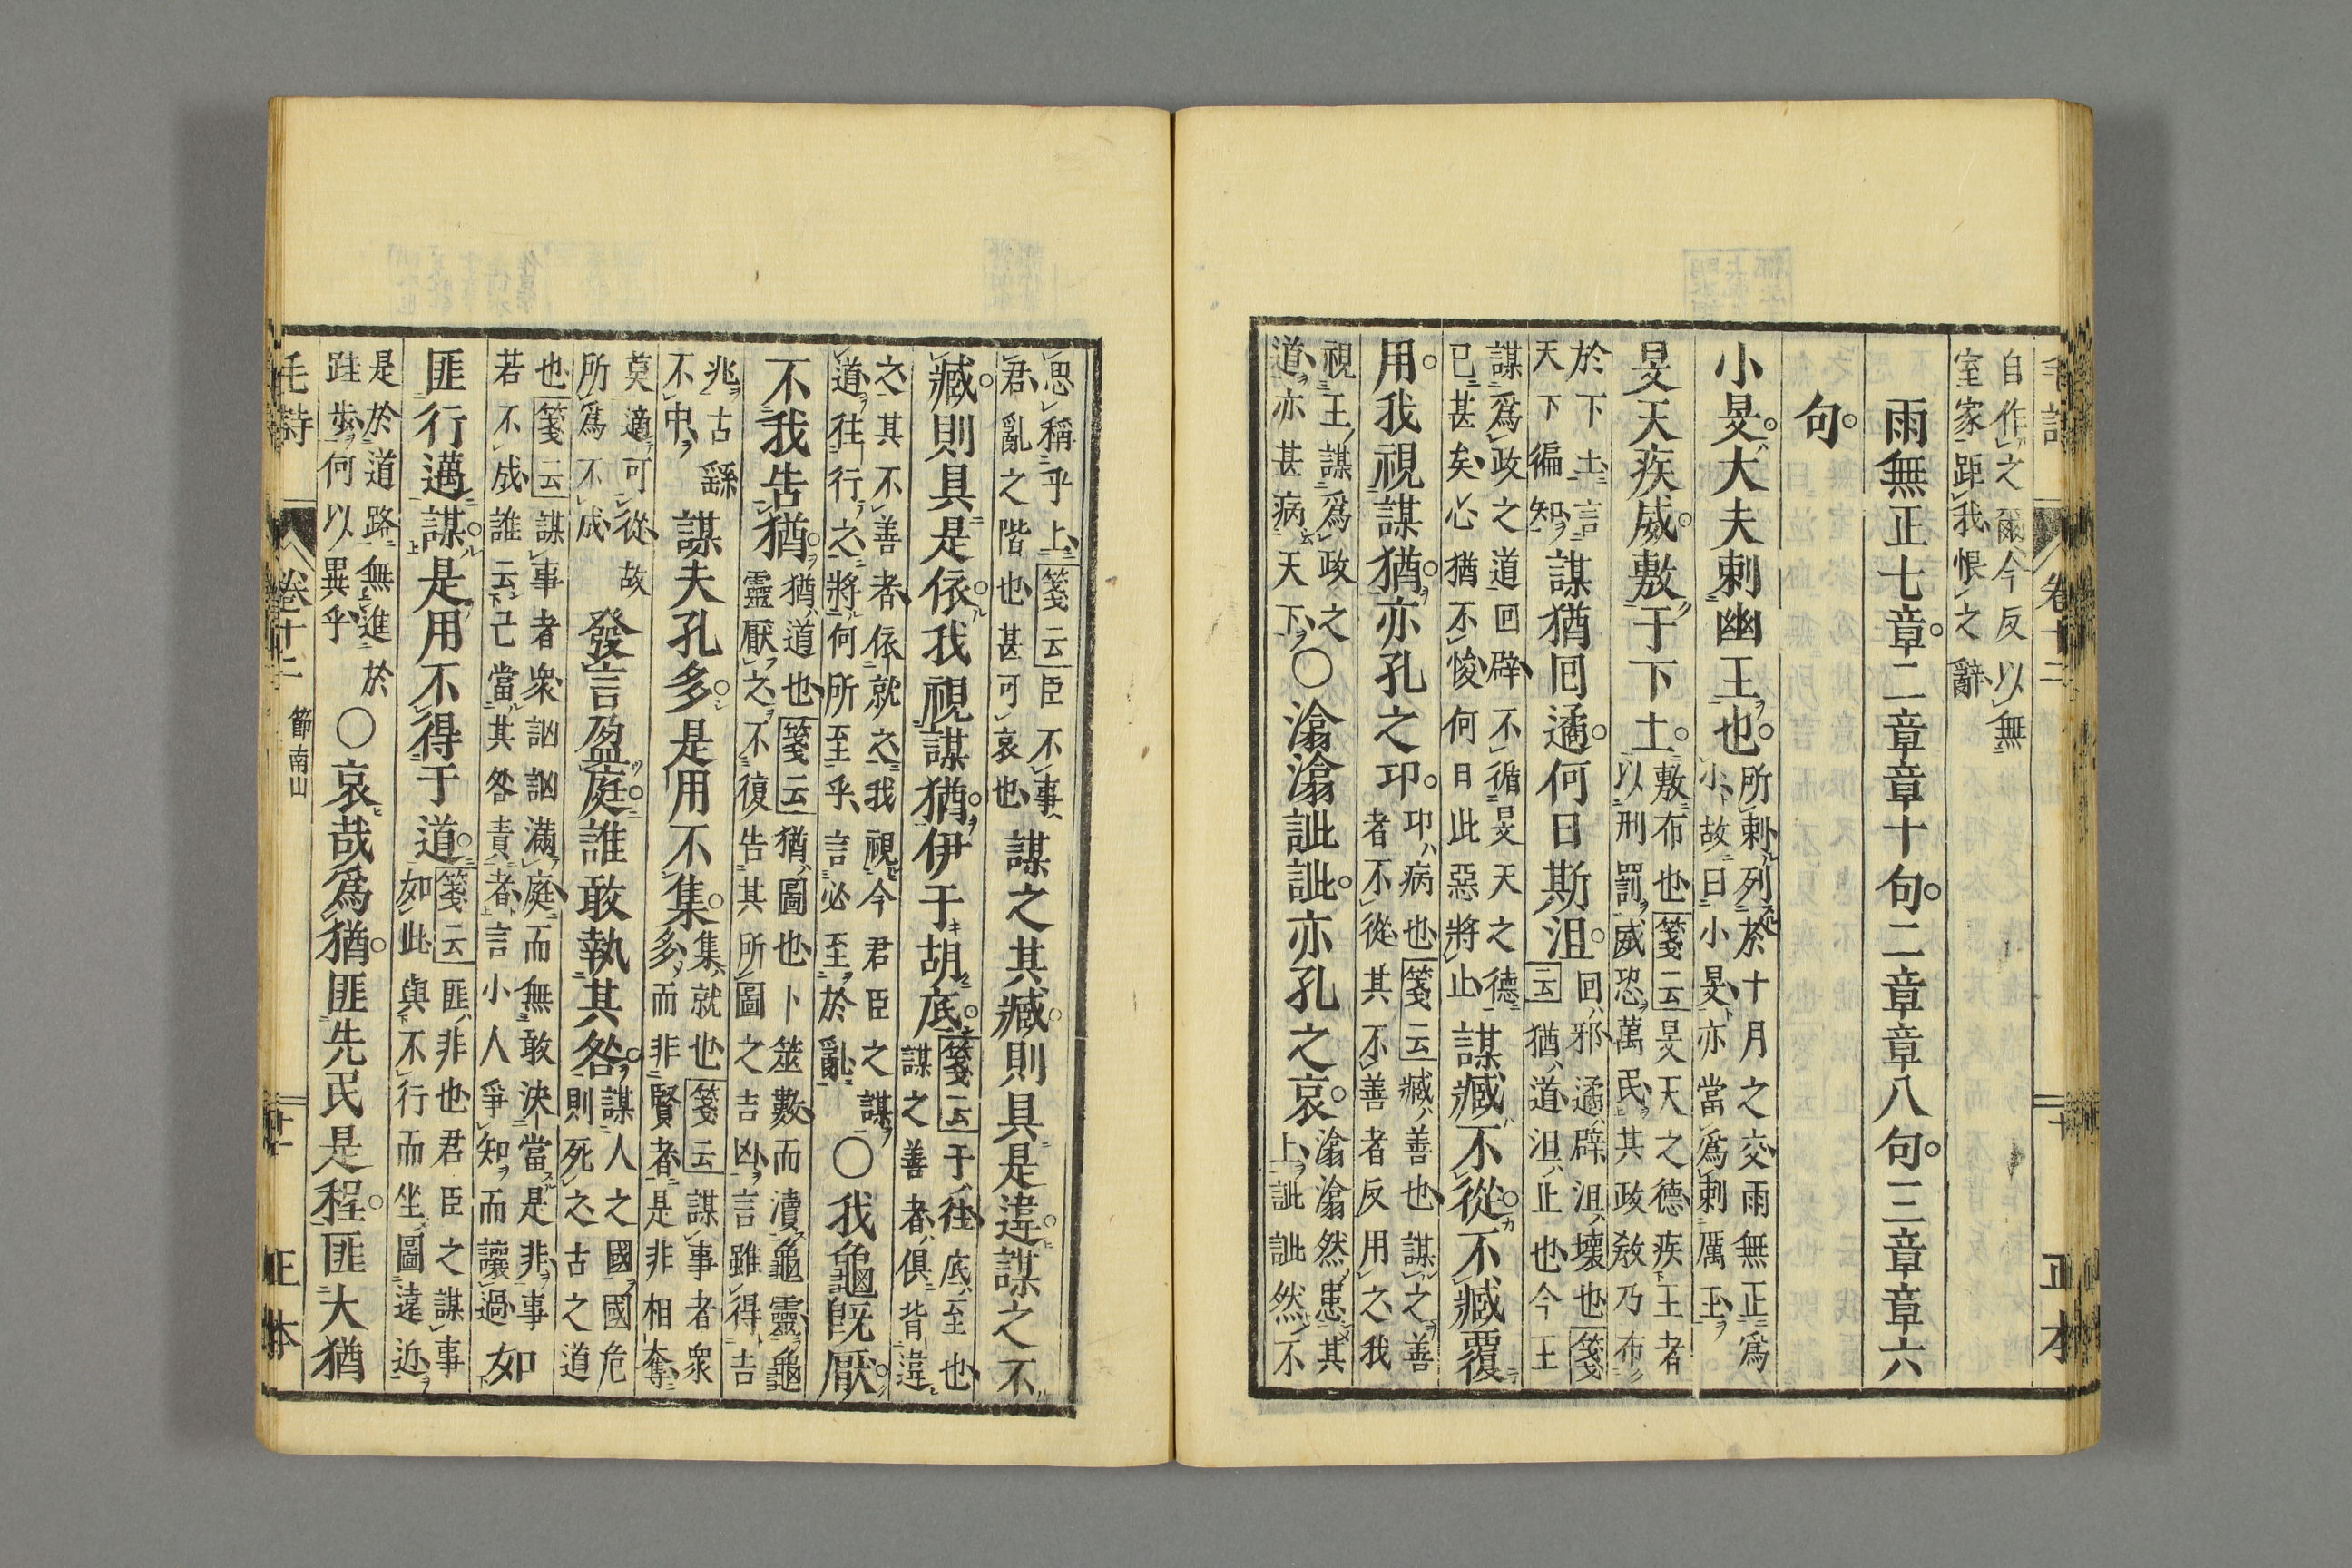 自作之爾今反以無
室家距我恨之辭
雨無正七章二章章十句二章章八句三章章六
句
小旻大夫刺幽王也
所刺列於十月之交雨無正爲
小故曰小旻亦當爲刺厲王
旻天疾威敷于下土
敷布也箋云旻天之德疾王者
以刑罰威恐萬民其政敎乃布
於下土言
天下徧知
謀猶囘遹何日斯沮
回邪遹辟沮壞也箋
云猶道沮止也今王
謀爲政之道回辟不循旻天之德
已甚矣心猶不悛何日此惡將止
謀臧不從不臧覆
用我視謀猶亦孔之邛
邛病也箋云臧善也謀之善
者不從其不善者反用之我
視王謀爲政之
道亦甚病天下
○潝潝訿訿亦孔之哀
潝潝然患其
上訿訿然不
思稱乎上箋云臣不事
君亂之階也甚可哀也
謀之其臧則具是違謀之不
臧則具是依我視謀猶伊于胡底
箋云于往底至也
謀之善者俱背違
之其不善者依就之我視今君臣之謀
道往行之將何所至乎言必至於亂
○我龜旣厭
不我告猶
猶道也箋云猶圖也卜筮數而瀆龜靈龜
靈厭之不復告其所圖之吉凶言雖得吉
兆古繇
不中
謀夫孔多是用不集
集就也箋云謀事者衆
多而非賢者是非相奪
莫適可從故
所爲不成
發言盈庭誰敢執其咎
謀人之國國危
則死之古之道
也箋云謀事者衆訩訩滿庭而無敢決當是非事
若不成誰云己當其咎責者言小人爭知而讓過
如
匪行邁謀是用不得于道
箋云匪非也君臣之謀事
如此與不行而坐圖遠近
是於道路無進於
跬步何以異乎
○哀哉爲猶匪先民是程匪大猶
毛詩 卷十二 節南山 正本